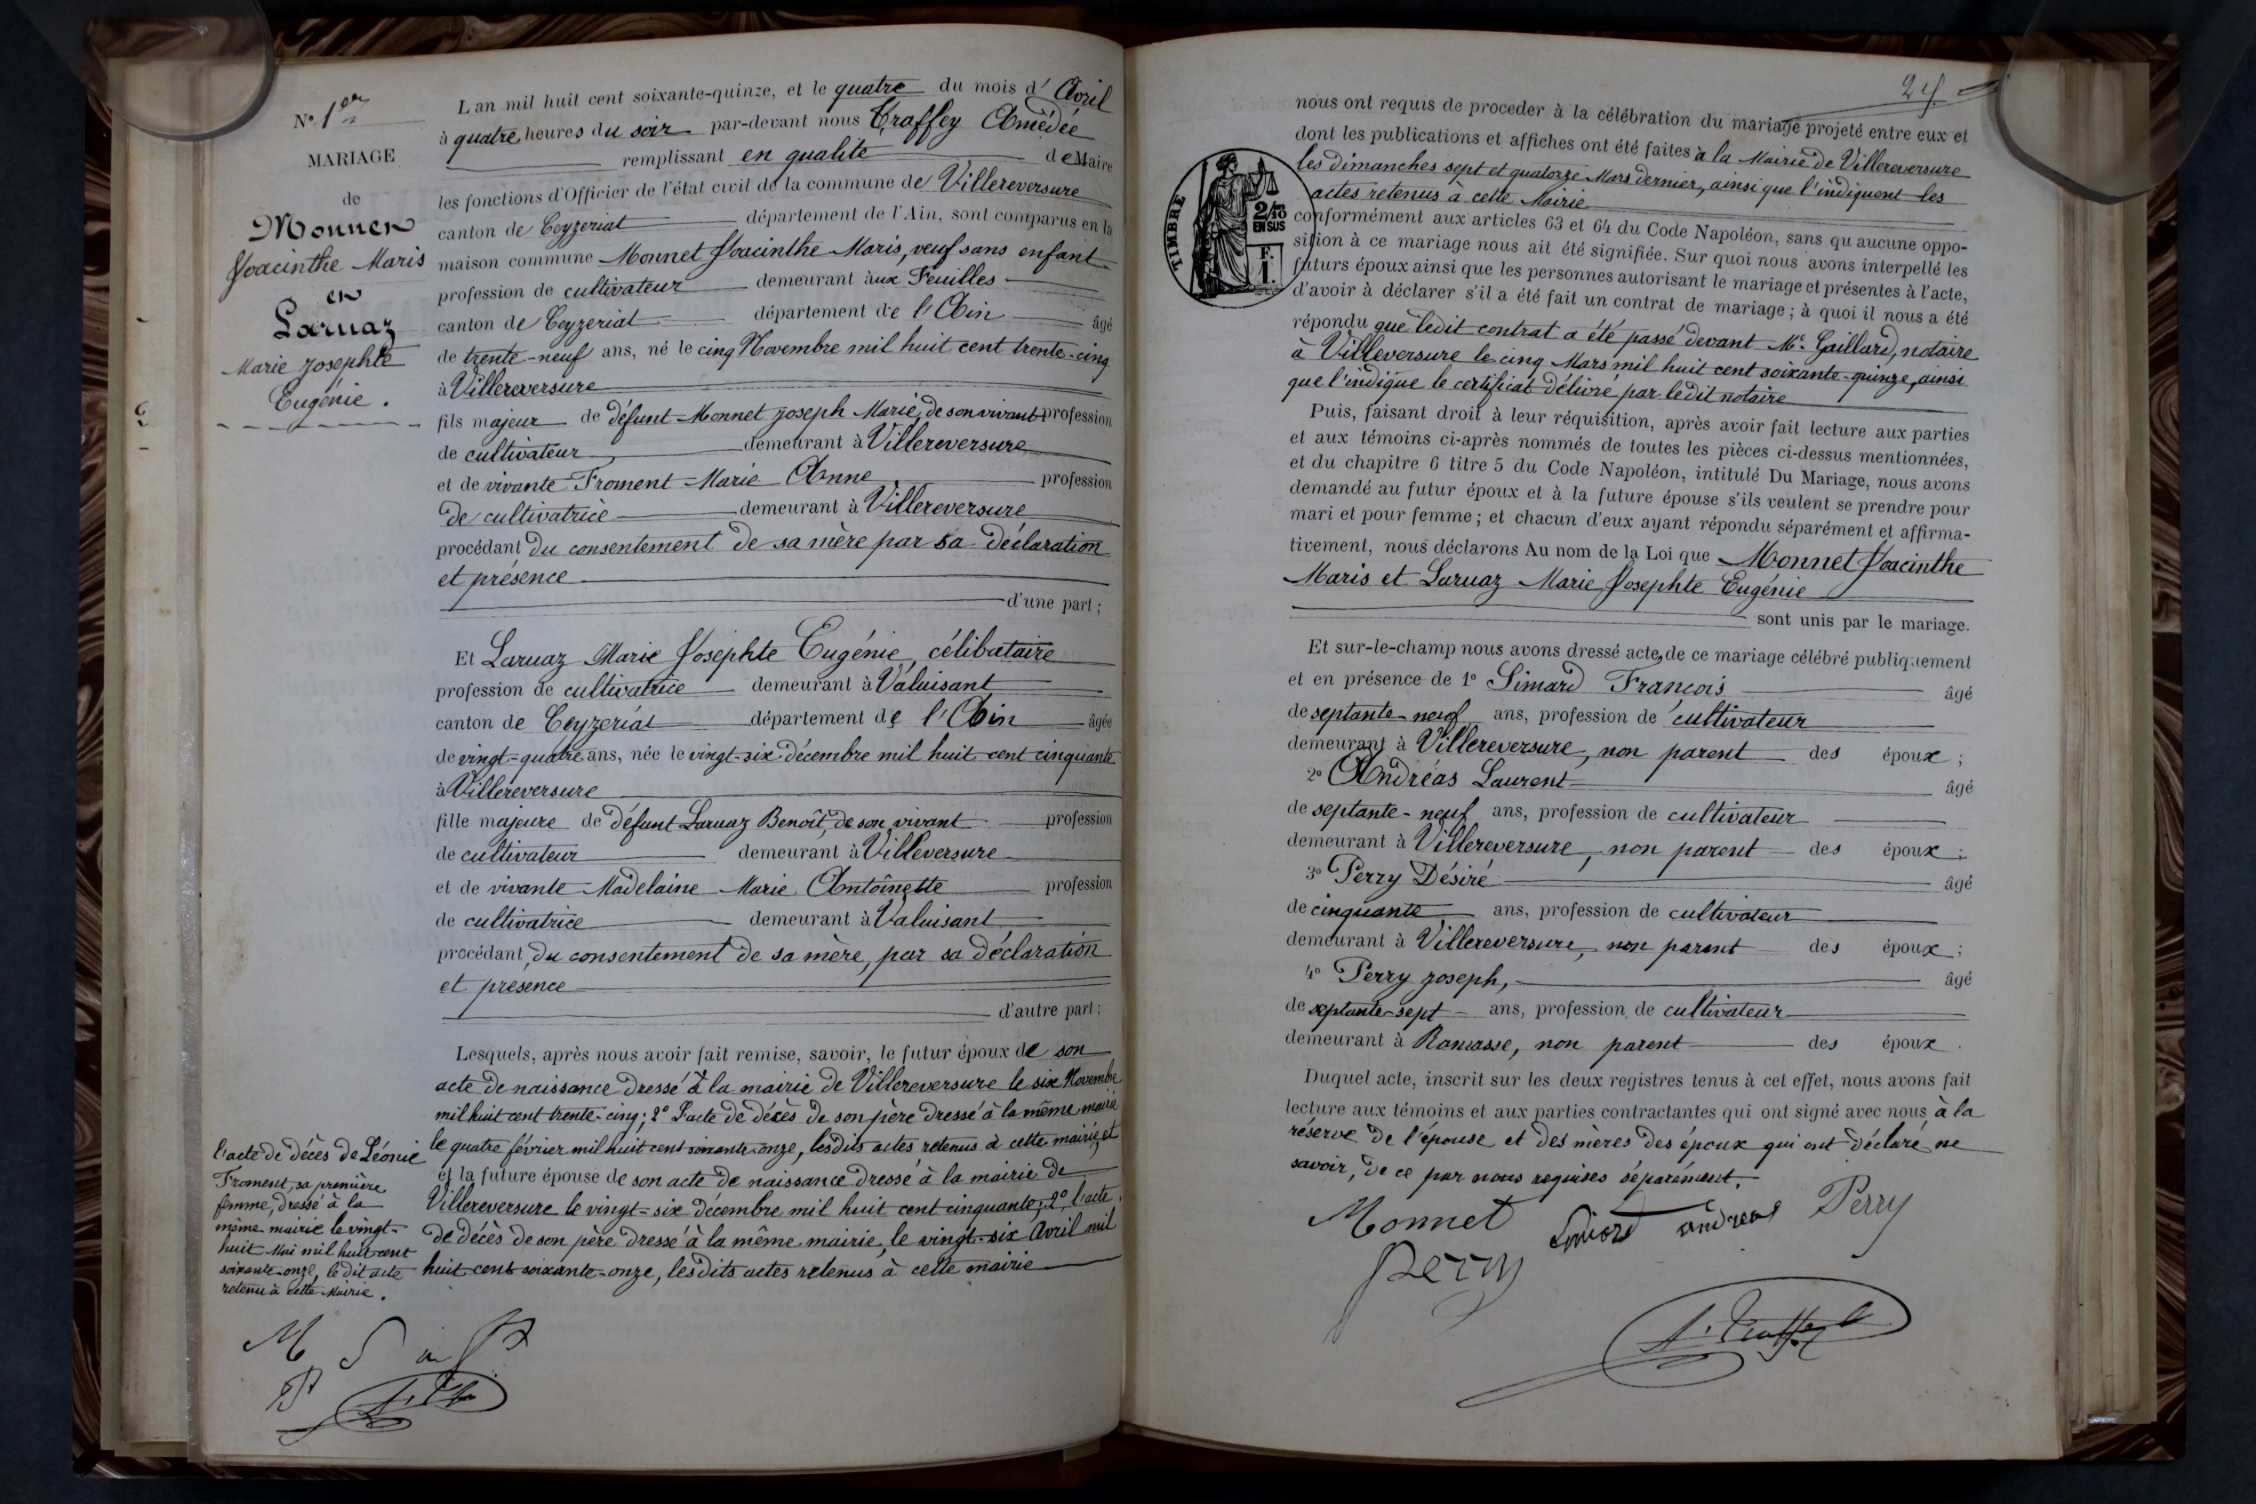 N° 1er
MARIAGE
de
Monnet
Hyacinthe Maris
et
Laruaz
Marie Josephte
Eugénie.
L'an mil huit cent soixante-quinze, et le quatre du mois d'Avril
à quatre heures du soir par-devant nous Traffey Amédée
remplissant en qualité de Maire
les fonctions d'Officier de l'état civil de la commune de Villereversure
canton de Ceyzeriat département de l'Ain, sont comparus en la
maison commune Monnet Hyacinthe Maris, veuf sans enfant
profession de cultivateur demeurant aux Feuilles
canton de Ceyzeriat département de l'Ain âgé
de trente-neuf ans, né le cinq Novembre mil huit cent trente-cinq
à Villereversure
fils majeur de défunt Monnet Joseph Marie, de son vivant profession
de cultivateur demeurant à Villereversure
et de vivante Froment Marie Anne profession
de cultivatrice demeurant à Villereversure
procédant du consentement de sa mère par sa déclaration
et présence
d'une part;
Et Laruaz Marie Josephte Eugénie, célibataire
profession de cultivatrice demeurant à Valuisant
canton de Ceyzeriat département de l'Ain âgée
de vingt-quatre ans, née le vingt-six décembre mil huit cent cinquante
à Villereversure
fille majeure de défunt Laruaz Benoît, de son vivant profession
de cultivateur demeurant à Villeversure
et de vivante Madelaine Marie Antoinette profession
de cultivatrice demeurant à Valuisant
procédant du consentement de sa mère, par sa déclaration
et présence
d'autre part;
Lesquels, après nous avoir fait remise, savoir, le futur époux de son
acte de naissance dressé à la mairie de Villereversure le six Novembre
mil huit cent trente-cinq; 2° l'acte de décès de son père dressé à la même mairie
le quatre février mil huit cent soixante-onze, lesdits actes retenus à cette mairie, et
et la future épouse de son acte de naissance dressé à la mairie de
Villereversure le vingt-six décembre mil huit cent cinquante; 2° l'acte
de décès de son père dressé à la même mairie, le vingt-six Avril mil
huit cent soixante-onze, lesdits actes retenus à cette mairie
l'acte de décès de Léonie
Froment, sa première
femme, dressé à la
même mairie le vingt-
huit Mai mil huit cent
soixante-onze, le dit acte
retenu à cette Mairie.
M S
nous ont requis de proceder à la célébration du mariage projeté entre eux et
dont les publications et affiches ont été faites à la Mairie de Villereversure
les dimanches sept et quatorze Mars dernier, ainsi que l'indiquent les
actes retenus à cette Mairie
TIMBRE
2/10
EN SUS
F.
1.
conformément aux articles 63 et 64 du Code Napoléon, sans qu'aucune oppo-
sition à ce mariage nous ait été signifiée. Sur quoi nous avons interpellé les
futurs époux ainsi que les personnes autorisant le mariage et présentes à l'acte,
d'avoir à déclarer s'il a été fait un contrat de mariage; à quoi il nous a été
répondu que ledit contrat a été passé devant Me. Gaillard, notaire
à Villeversure le cinq Mars mil huit cent soixante-quinze, ainsi
que l'indique le certificat délivré par ledit notaire
Puis, faisant droit à leur réquisition, après avoir fait lecture aux parties
et aux témoins ci-après nommés de toutes les pièces ci-dessus mentionnées,
et du chapitre 6 titre 5 du Code Napoléon, intitulé Du Mariage, nous avons
demandé au futur époux et à la future épouse s'ils veulent se prendre pour
mari et pour femme; et chacun d'eux ayant répondu séparément et affirma-
tivement, nous déclarons Au nom de la Loi que Monnet Hyacinthe
Maris et Laruaz Marie Josephte Eugénie
sont unis par le mariage.
Et sur-le-champ nous avons dressé acte de ce mariage célébré publiquement
et en présence de 1° Simard François âgé
de septante-neuf ans, profession de cultivateur
demeurant à Villereversure, non parent des époux;
2° Andréas Laurent âgé
de septante-neuf ans, profession de cultivateur
demeurant à Villereversure, non parent des époux;
3° Perry Désiré âgé
de cinquante ans, profession de cultivateur
demeurant à Villereversure, non parent des époux;
4° Perry Joseph, âgé
de septante-sept ans, profession de cultivateur
demeurant à Ramasse, non parent des époux.
Duquel acte, inscrit sur les deux registres tenus à cet effet, nous avons fait
lecture aux témoins et aux parties contractantes qui ont signé avec nous à la
réserve de l'épouse et des mères des époux qui ont déclaré ne
savoir, de ce par nous requises séparément.
Monnet Simard andreas Perry
Perry
A. Traffey